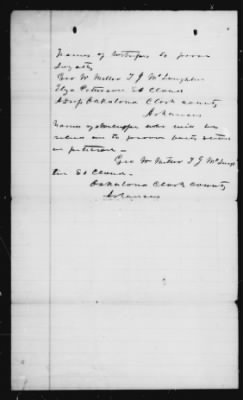 Names of Witnesses to prove
Loyalty
Geo W Miller T J McLaughlin
Elza Peterson Ed Cloud
Okalona Clark County
Arkansas
Names of Witnesses who will be
relied on to prove facts stated
in petition -
Geo W Miller T J McLaugh
lin Ed Cloud -
Okalona Clark County
Arkansas